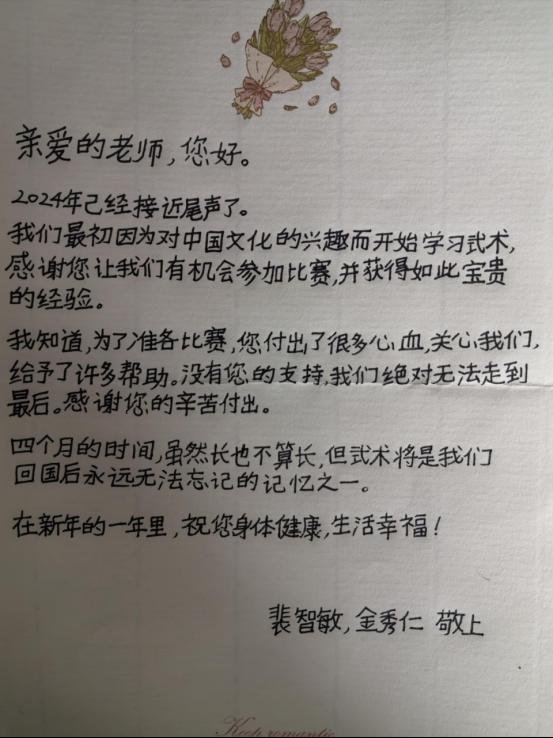 亲爱的老师,您好。
2024年已经接近尾声了。
我们最初因为对中国文化的兴趣而开始学习武术,
感谢您让我们有机会参加比赛,并获得如此宝贵
的经验。
我知道,为了准备比赛,您付出了很多心血,关心我们,
给予了许多帮助。没有您的支持,我们绝对无法走到
最后。感谢您的辛苦付出。
四个月的时间,虽然长也不算长,但武术将是我们
回国后永远无法忘记的记忆之一。
在新年的一年里,祝您身体健康,生活幸福!
裴智敏,金秀仁 敬上
Keep romantic